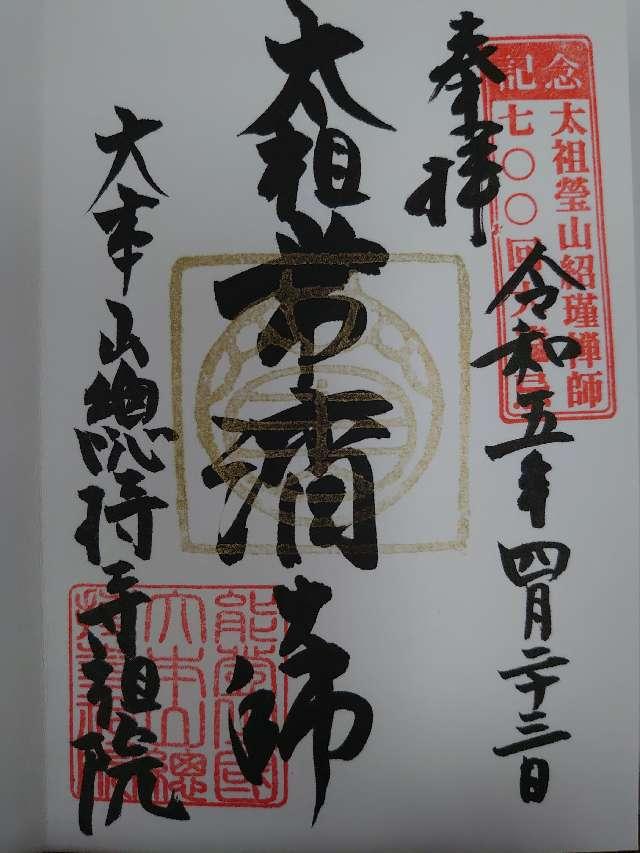 記念
太祖瑩山紹瑾禅師
七〇〇回大遠忌
奉拝
令和五年四月二十三日
太祖常済大師
大本山總持寺祖院
能登國
大本山總
持寺祖院